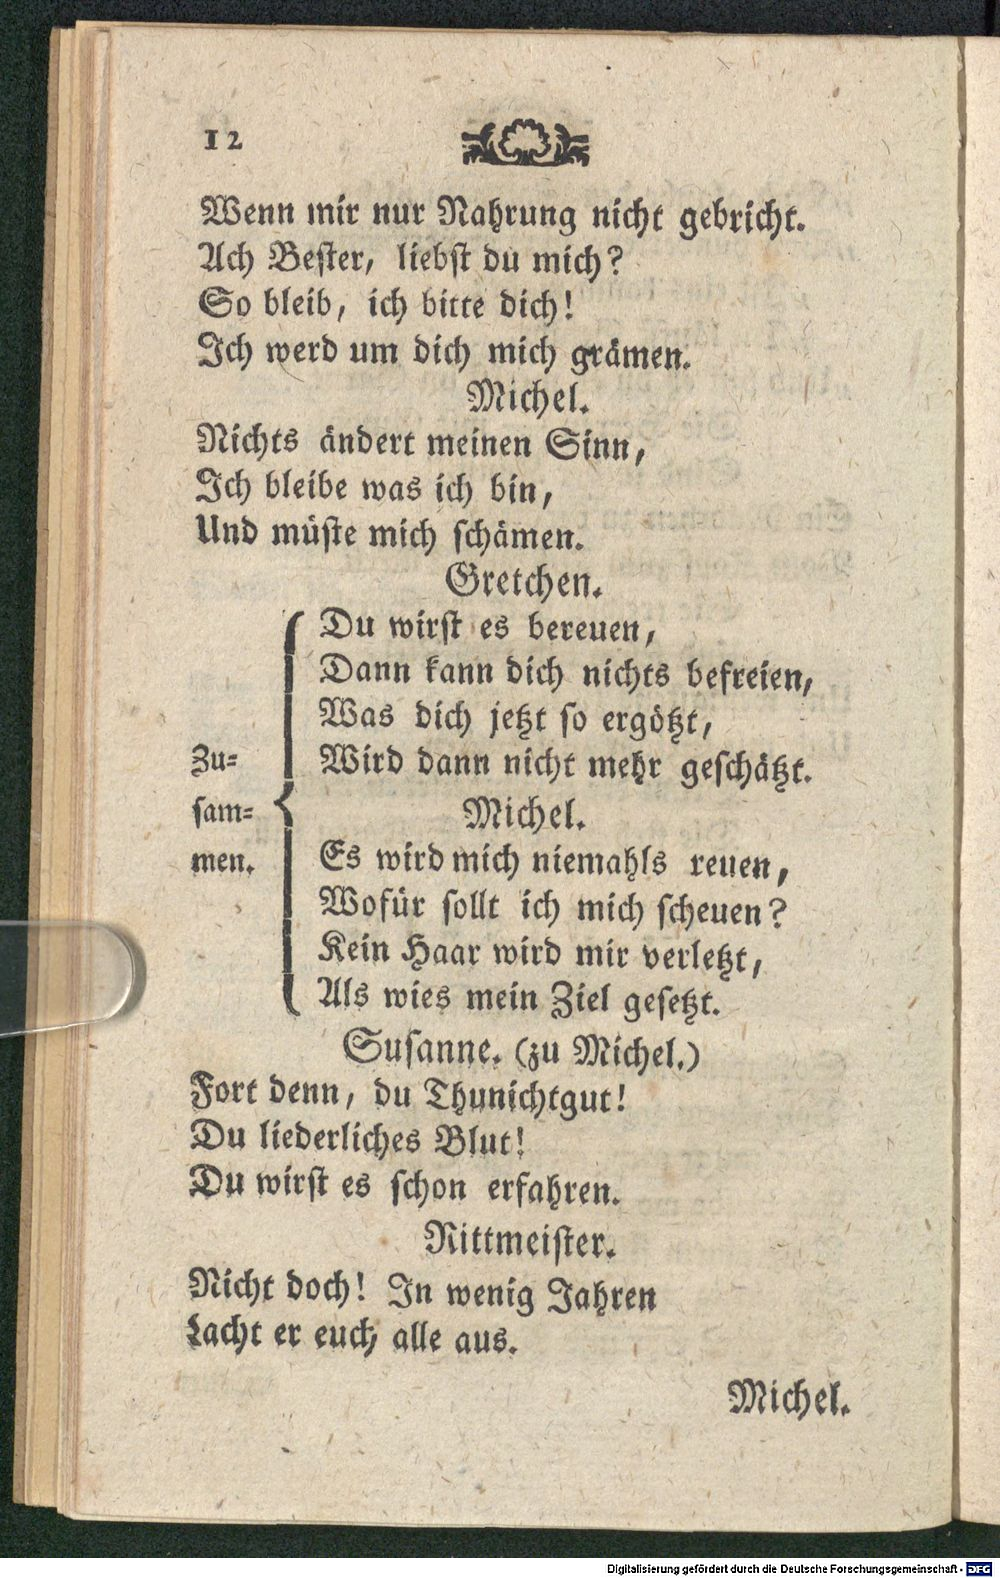 12
Wenn mir nur Nahrung nicht gebricht.
Ach Bester, liebst du mich?
So bleib, ich bitte dich!
Ich werd um dich mich grämen.
Michel.
Nichts ändert meinen Sinn,
Ich bleibe was ich bin,
Und müste mich schämen.
Gretchen.
Du wirst es bereuen,
Dann kann dich nichts befreien,
Was dich jetzt so ergötzt,
Wird dann nicht mehr geschätzt.
Zu=
sam=
men.
Michel.
Es wird mich niemahls reuen,
Wofür sollt ich mich scheuen?
Kein Haar wird mir verletzt,
Als wies mein Ziel gesetzt.
Susanne. (zu Michel.)
Fort denn, du Thunichtgut!
Du liederliches Blut!
Du wirst es schon erfahren.
Rittmeister.
Nicht doch! In wenig Jahren
Lacht er euch alle aus.
Michel.
Digitalisierung gefördert durch die Deutsche Forschungsgemeinschaft - DFG